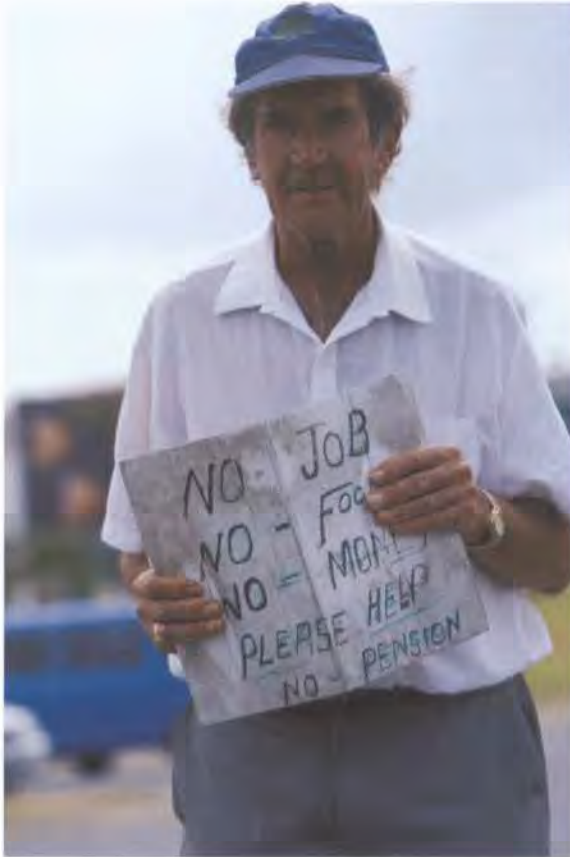 NO - JOB
NO - FOO
NO - MONE
PLEASE HELP
NO - PENSION